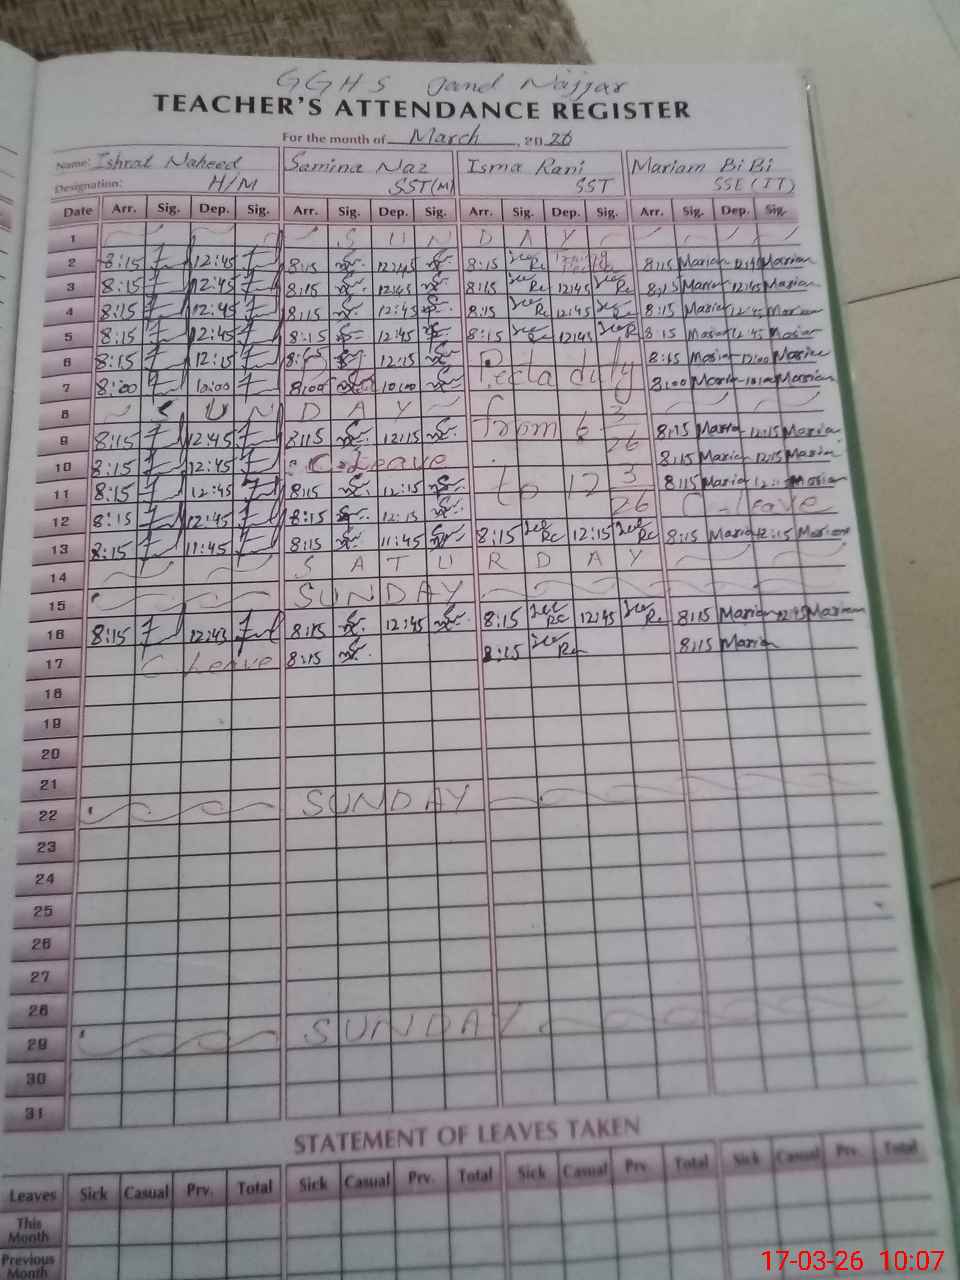 GGHS Jand Najjar
TEACHER'S ATTENDANCE REGISTER
For the month of March, 2026
Name: Ishrat Naheed Samina Naz Isma Rani Mariam BiBi
Designation: H/M SST(M) SST SSE (IT)
Date Arr. Sig. Dep. Sig. Arr. Sig. Dep. Sig. Arr. Sig. Dep. Sig. Arr. Sig. Dep. Sig.
1 SUNDAY
2 8:15 12:45 8:15 12:45 8:15 8:15 Mariam 12:45 Mariam
3 8:15 12:45 8:15 12:45 8:15 12:45 8:15 Mariam 12:45 Mariam
4 8:15 12:45 8:15 12:45 8:15 12:45 8:15 Mariam 12:45 Mariam
5 8:15 12:45 8:15 12:45 8:15 12:45 8:15 Mariam 12:45 Mariam
6 8:15 12:15 8:15 12:15 8:15 Mariam 12:00 Mariam
7 8:00 10:00 8:00 10:00 duty 8:00 Mariam 10:00 Mariam
8 SUNDAY
9 8:15 12:45 8:15 12:15 from 6 3/26 8:15 Mariam 12:15 Mariam
10 8:15 12:45 C.Leave 8:15 Mariam 12:15 Mariam
11 8:15 12:45 8:15 12:15 to 12 3/26 8:15 Mariam Mariam
12 8:15 12:45 8:15 12:15 C.Leave
13 8:15 11:45 8:15 11:45 8:15 12:15 8:15 Mariam 12:15 Mariam
14 SATURDAY
15 SUNDAY
16 8:15 12:45 8:15 12:45 8:15 12:45 8:15 Mariam 12:45 Mariam
17 C Leave 8:15 8:15 8:15 Mariam
18
19
20
21
22 SUNDAY
23
24
25
26
27
28
29 SUNDAY
30
31
STATEMENT OF LEAVES TAKEN
Leaves Sick Casual Prv. Total Sick Casual Prv. Total Sick Casual Prv. Total Sick Casual Prv. Total
This Month
Previous Month
17-03-26 10:07